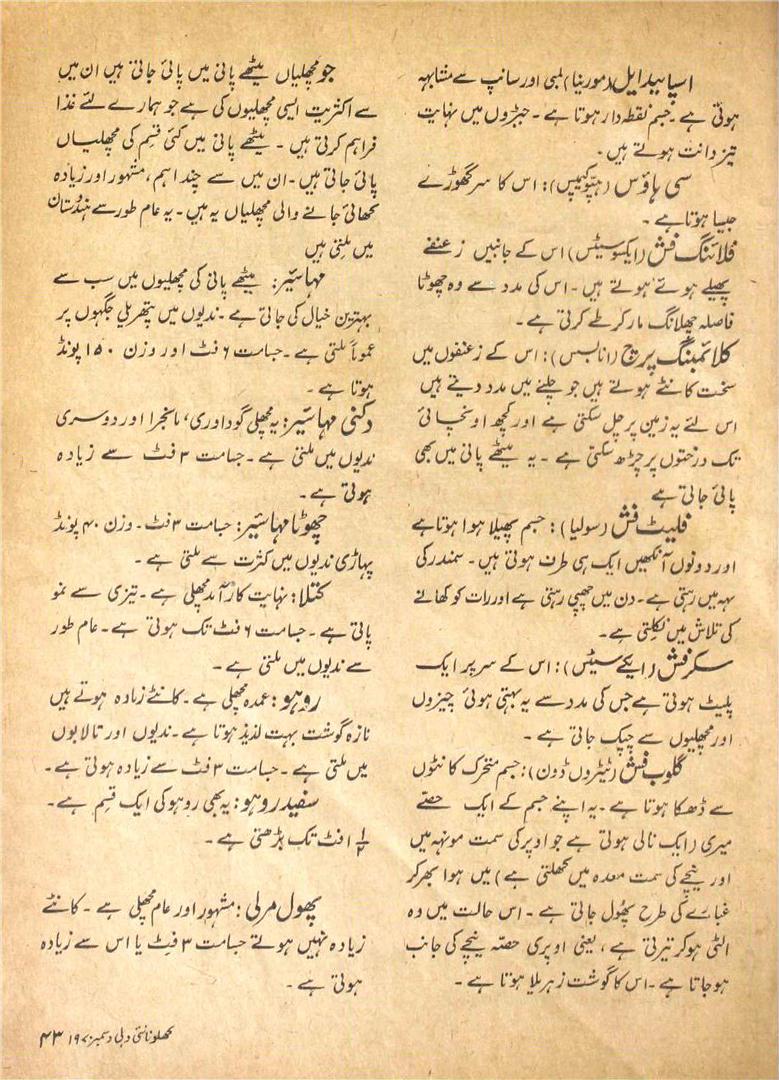 اسپائیڈ ایل (مورینا) لمبی اور سانپ سے مشابہہ
ہوتی ہے۔ جسم نقطہ دار ہوتا ہے۔ جبڑوں میں نہایت
تیز دانت ہوتے ہیں۔
سی ہاؤس (ہپّوکیمپس): اس کا سر گھوڑے
جیسا ہوتا ہے۔
فلائنگ فش (ایکسوسیٹس) اس کے جانبیں زعنفے
پھیلے ہوئے ہوتے ہیں۔ اس کی مدد سے وہ چھوٹا
فاصلہ چھلانگ مار کر طے کرتی ہے۔
کلائمبنگ پرچ (انابس): اس کے زعنفوں میں
سخت کانٹے ہوتے ہیں جو چلنے میں مدد دیتے ہیں
اس لئے یہ زمین پر چل سکتی ہے اور کچھ اونچائی
تک درختوں پر چڑھ سکتی ہے۔ یہ میٹھے پانی میں بھی
پائی جاتی ہے
فلیٹ فش (سولیا): جسم پھیلا ہوا ہوتا ہے
اور دونوں آنکھیں ایک ہی طرف ہوتی ہیں۔ سمندر کی
تہہ میں رہتی ہے۔ دن میں چھپی رہتی ہے اور رات کو کھانے
کی تلاش میں نکلتی ہے۔
سکر فش (ایکے سیٹس): اس کے سر پر ایک
پلیٹ ہوتی ہے جس کی مدد سے یہ بہتی ہوئی چیزوں
اور مچھلیوں سے چپک جاتی ہے۔
گلوب فش (ٹیٹروں ڈون): جسم متحرک کانٹوں
سے ڈھکا ہوتا ہے۔ یہ اپنے جسم کے ایک حصّے
میری (ایک نالی ہوتی ہے جو اوپر کی سمت مونہہ میں
اور نیچے کی سمت معدہ میں کھلتی ہے) میں ہوا بھر کر
غبارے کی طرح پھُول جاتی ہے۔ اس حالت میں وہ
الٹی ہو کر تیرتی ہے، یعنی اوپری حصّہ نیچے کی جانب
ہو جاتا ہے۔ اس کا گوشت زہریلا ہوتا ہے۔
جو مچھلیاں میٹھے پانی میں پائی جاتی ہیں ان میں
سے اکثریت ایسی مچھلیوں کی ہے جو ہمارے لئے غذا
فراہم کرتی ہیں۔ میٹھے پانی میں کئی قسم کی مچھلیاں
پائی جاتی ہیں۔ ان میں سے چند اہم، مشہور اور زیادہ
کھائی جانے والی مچھلیاں یہ ہیں۔ یہ عام طور سے ہندوستان
میں ملتی ہیں
مہاشیر: میٹھے پانی کی مچھلیوں میں سب سے
بہترین خیال کی جاتی ہے۔ ندیوں میں پتھریلی جگہوں پر
عموماً ملتی ہے۔ جسامت ۶ فٹ اور وزن ۱۵۰ پونڈ
ہوتا ہے۔
دکنی مہاشیر: یہ مچھلی گوداوری، مانجرا اور دوسری
ندیوں میں ملتی ہے۔ جسامت ۳ فٹ سے زیادہ
ہوتی ہے۔
چھوٹا مہاشیر: جسامت ۳ فٹ۔ وزن ۴۰ پونڈ
پہاڑی ندیوں میں کثرت سے ملتی ہے۔
کتلا: نہایت کارآمد مچھلی ہے۔ تیزی سے نمو
پاتی ہے۔ جسامت ۶ فٹ تک ہوتی ہے۔ عام طور
سے ندیوں میں ملتی ہے۔
روہو: عمدہ مچھلی ہے۔ کانٹے زیادہ ہوتے ہیں
تازہ گوشت بہت لذیذ ہوتا ہے۔ ندیوں اور تالابوں
میں ملتی ہے۔ جسامت ۳ فٹ سے زیادہ ہوتی ہے۔
سفید روہو: یہ بھی روہو کی ایک قسم ہے۔
۱ ۱/۲ فٹ تک بڑھتی ہے۔
پھول مرلی: مشہور اور عام مچھلی ہے۔ کانٹے
زیادہ نہیں ہوتے جسامت ۳ فٹ یا اس سے زیادہ
ہوتی ہے۔
کھلونا نئی دہلی دسمبر ۱۹۷۰ ۴۳